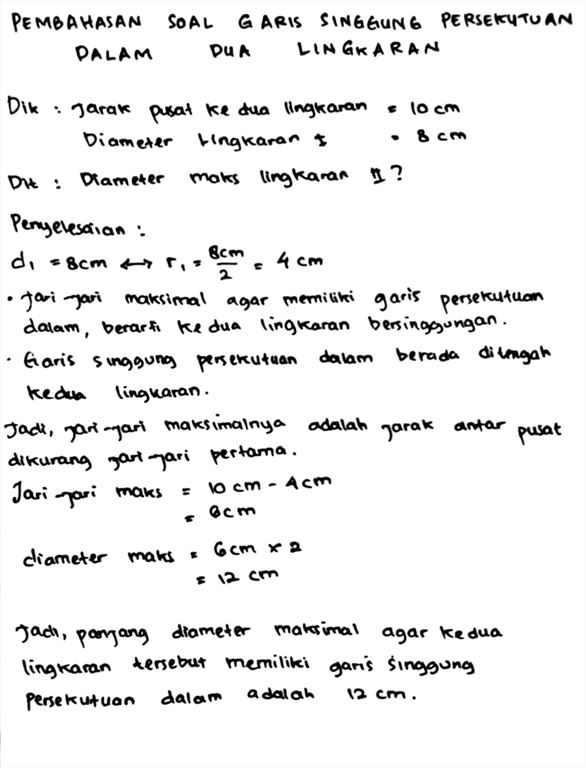 PEMBAHASAN SOAL GARIS SINGGUNG PERSEKUTUAN
DALAM DUA LINGKARAN
Dik : Jarak pusat kedua lingkaran = 10 cm
Diameter lingkaran I = 8 cm
Dit : Diameter maks lingkaran II ?
Penyelesaian :
d₁ = 8cm ↔ r₁ = 8cm/2 = 4 cm
• Jari-jari maksimal agar memiliki garis persekutuan
dalam, berarti kedua lingkaran bersinggungan.
• Garis singgung persekutuan dalam berada ditengah
kedua lingkaran.
Jadi, jari-jari maksimalnya adalah jarak antar pusat
dikurang jari-jari pertama.
Jari-jari maks = 10 cm - 4 cm
= 6cm
diameter maks = 6cm x 2
= 12 cm
Jadi, panjang diameter maksimal agar kedua
lingkaran tersebut memiliki garis singgung
persekutuan dalam adalah 12 cm.